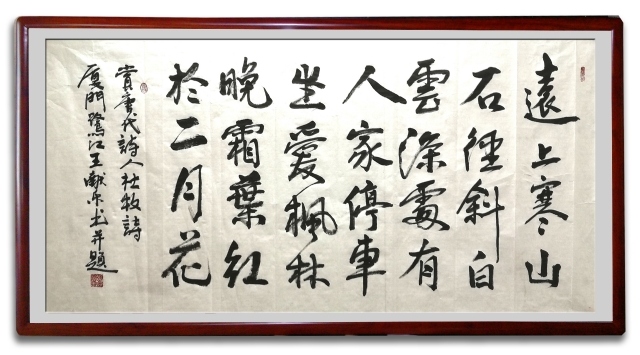 遠上寒山
石徑斜白
雲深處有
人家停車
坐愛楓林
晚霜葉紅
於二月花
賞唐代詩人杜牧詩
廈門鷺江王獻 并題